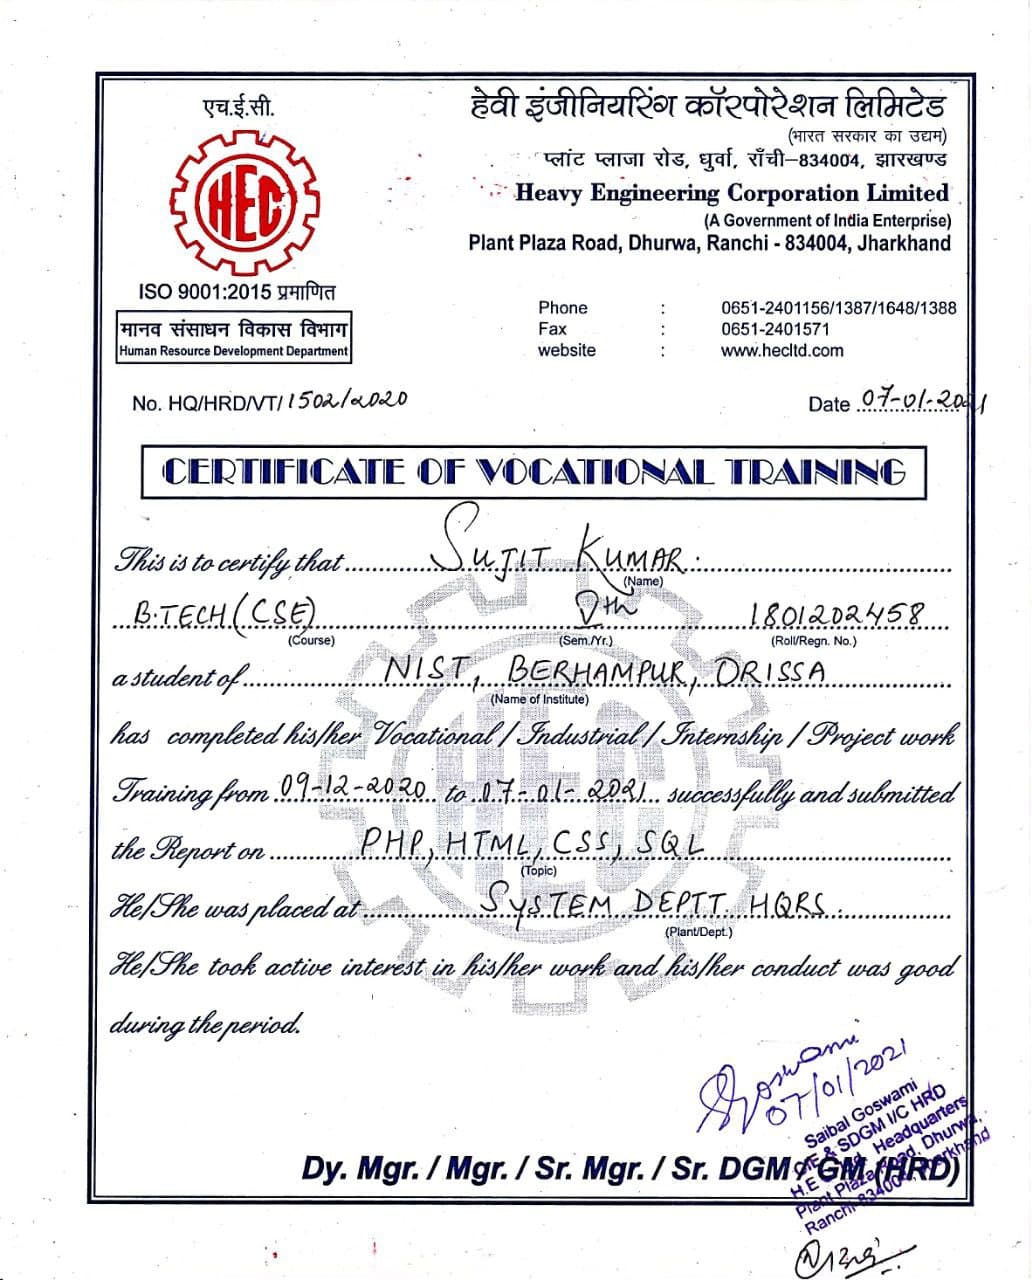 एच.ई.सी.
HEC
ISO 9001:2015 प्रमाणित
मानव संसाधन विकास विभाग
Human Resource Development Department
हेवी इंजीनियरिंग कॉरपोरेशन लिमिटेड
(भारत सरकार का उद्यम)
प्लांट प्लाजा रोड, धुर्वा, राँची–834004, झारखण्ड
Heavy Engineering Corporation Limited
(A Government of India Enterprise)
Plant Plaza Road, Dhurwa, Ranchi - 834004, Jharkhand
Phone : 0651-2401156/1387/1648/1388
Fax : 0651-2401571
website : www.hecltd.com
No. HQ/HRD/VT/ 1502/2020
Date 07-01-2021
CERTIFICATE OF VOCATIONAL TRAINING
This is to certify that SUJIT KUMAR.
(Name)
B.TECH (CSE) Vth 1801202458
(Course) (Sem./Yr.) (Roll/Regn. No.)
a student of NIST, BERHAMPUR, ORISSA
(Name of Institute)
has completed his/her Vocational / Industrial / Internship / Project work
Training from 09-12-2020 to 07-01-2021 successfully and submitted
the Report on PHP, HTML, CSS, SQL
(Topic)
He/She was placed at SYSTEM DEPTT. HQRS.
(Plant/Dept.)
He/She took active interest in his/her work and his/her conduct was good
during the period.
HEC
Goswami
07/01/2021
Saibal Goswami
& SDGM I/C HRD
Headquarters
Plant Plaza Road, Dhurwa,
Ranchi-834004, Jharkhand
Dy. Mgr. / Mgr. / Sr. Mgr. / Sr. DGM / GM (HRD)